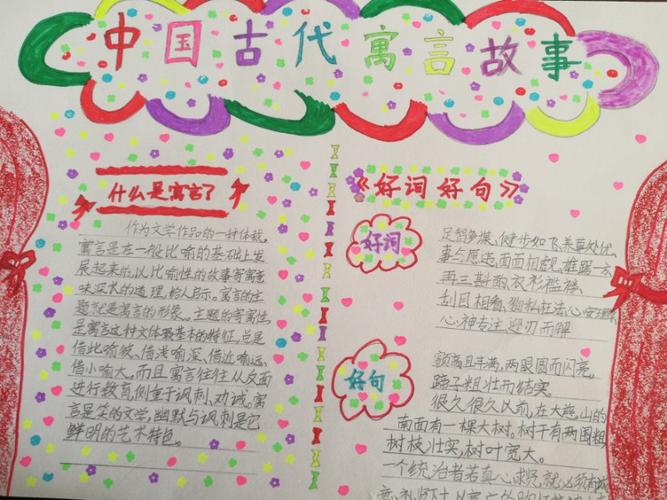 中国古代寓言故事
什么是寓言了
作为文学作品的一种体裁,
寓言是在一般比喻的基础上发
展起来的,以比喻性的故事寄寓意
味深长的道理,给人启示,寓言的主
题就是寓言的形象。主题的寄寓性
是寓言这种文体最基本的特征,总是
借此喻彼、借浅喻深、借近喻远、
借小喻大。而且寓言往往从反面
进行教育,侧重于讽刺、劝诫,寓
言是笑的文学,幽默与讽刺是它
鲜明的艺术特色。
《好词 好句》
好词
足智多谋、健步如飞、养尊处优、
事与愿违、面面相觑、雄踞一方
再三斟酌、衣衫褴褛、
刮目相看、徇私枉法、心安理
心神专注、迎刃而解
好句
额高且丰满,两眼圆而闪亮。
蹄子粗壮而结实。
很久很久以前,在大燕山的
南面有一棵大树。树干有两围粗
树枝壮实,树叶宽大。
一个统治者若真心求贤,就必须有诚